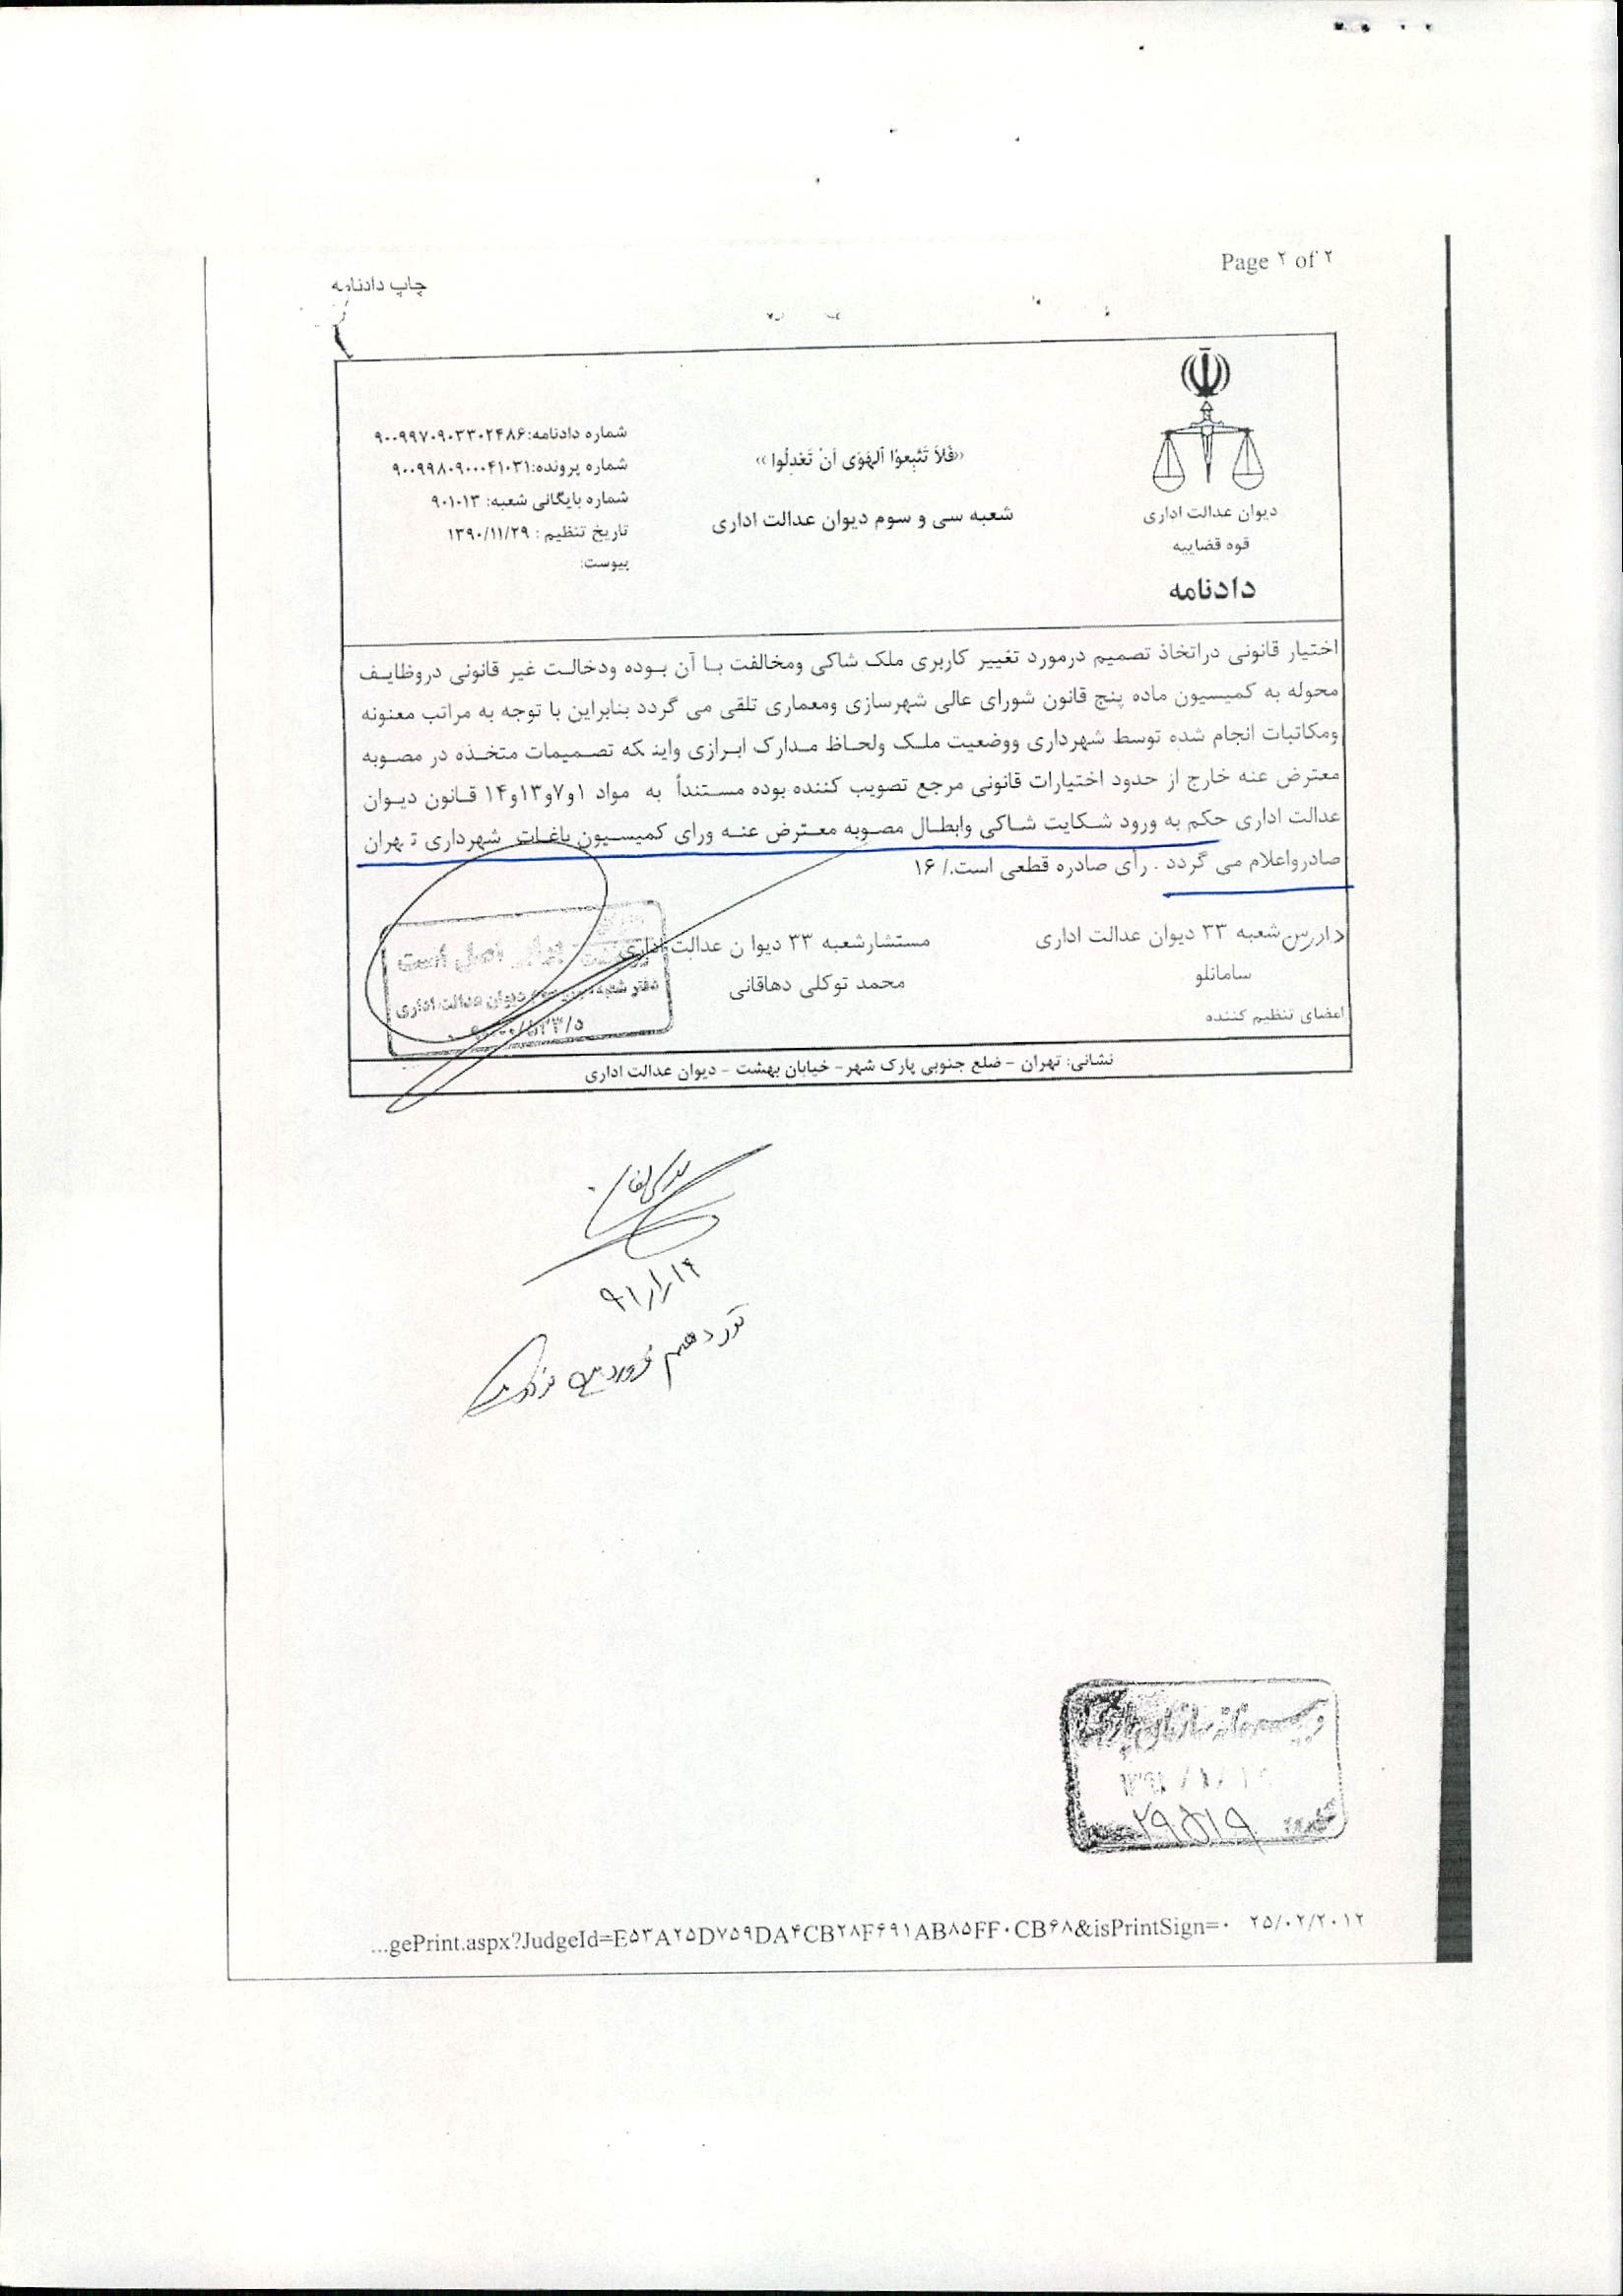 Page ۲ of ۲
چاپ دادنامه
دیوان عدالت اداری
قوه قضاییه
دادنامه
«فَلاَ تَتَّبِعوُا اَلهَوَی اَنْ تَعْدِلُوا»
شعبه سی و سوم دیوان عدالت اداری
شماره دادنامه:۹۰۰۹۹۷۰۹۰۳۳۰۲۴۸۶
شماره پرونده:۹۰۰۹۹۸۰۹۰۰۰۴۱۰۳۱
شماره بایگانی شعبه: ۹۰۱۰۱۳
تاریخ تنظیم : ۱۳۹۰/۱۱/۲۹
پیوست:
اختیار قانونی دراتخاذ تصمیم درمورد تغییر کاربری ملک شاکی ومخالفت با آن بوده ودخالت غیر قانونی دروظایف
محوله به کمیسیون ماده پنج قانون شورای عالی شهرسازی ومعماری تلقی می گردد بنابراین با توجه به مراتب معنونه
ومکاتبات انجام شده توسط شهرداری ووضعیت ملک ولحاظ مدارک ابرازی واینکه تصمیمات متخذه در مصوبه
معترض عنه خارج از حدود اختیارات قانونی مرجع تصویب کننده بوده مستنداً به مواد ۱و۷و۱۳و۱۴ قانون دیوان
عدالت اداری حکم به ورود شکایت شاکی وابطال مصوبه معترض عنه ورای کمیسیون باغات شهرداری تهران
صادرواعلام می گردد . رأی صادره قطعی است./ ۱۶
دادرس شعبه ۳۳ دیوان عدالت اداری
سامانلو
مستشارشعبه ۳۳ دیوان عدالت اداری
محمد توکلی دهاقانی
اعضای تنظیم کننده
برابر اصل است
دفتر شعبه دیوان عدالت اداری
نشانی: تهران - ضلع جنوبی پارک شهر- خیابان بهشت - دیوان عدالت اداری
۲۹۵۱۹
...gePrint.aspx?JudgeId=E۵۳A۲۵D۷۵۹DA۴CB۲۸F۶۹۱AB۸۵FF۰CB۶۸&isPrintSign=۰ ۲۵/۰۲/۲۰۱۲